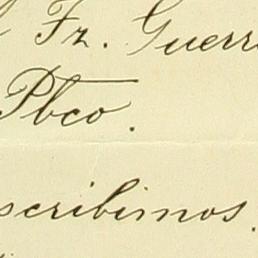 Fz. Guerr
Pbco.
scribimos.